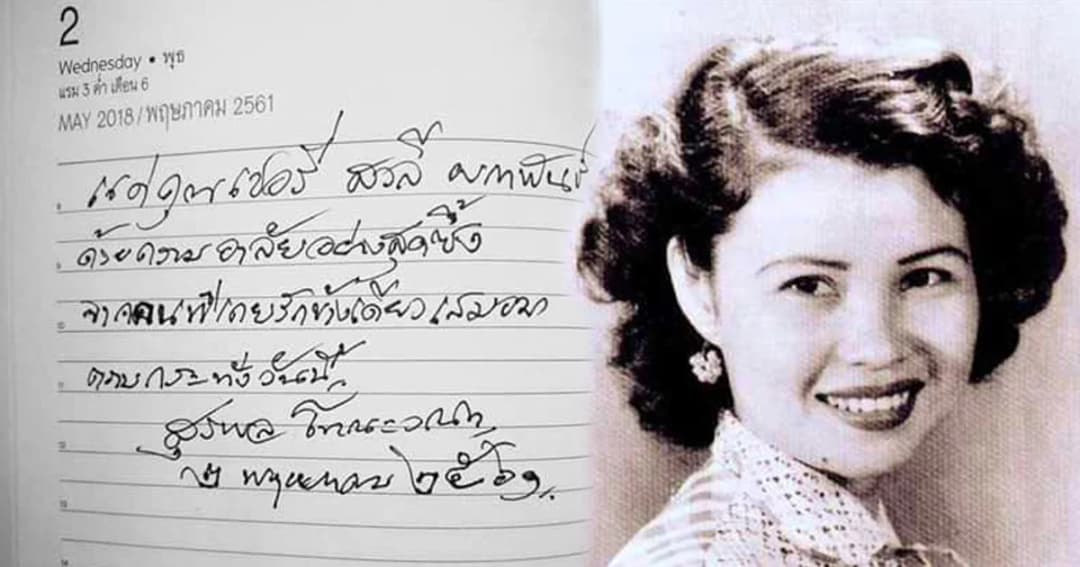 2
Wednesday • พุธ
แรม 3 ค่ำ เดือน 6
MAY 2018/พฤษภาคม 2561
แด่คุณเชอรี่ สวลี ผกาพันธุ์
8
ด้วยความอาลัยอย่างสุดซึ้ง
9
จากคนที่เคยรักข้างเดียวเสมอมา
10
ตราบกระทั่งวันนี้
11
สุรพล โทณะวณิก
12
๒ พฤษภาคม ๒๕๖๑
13
14